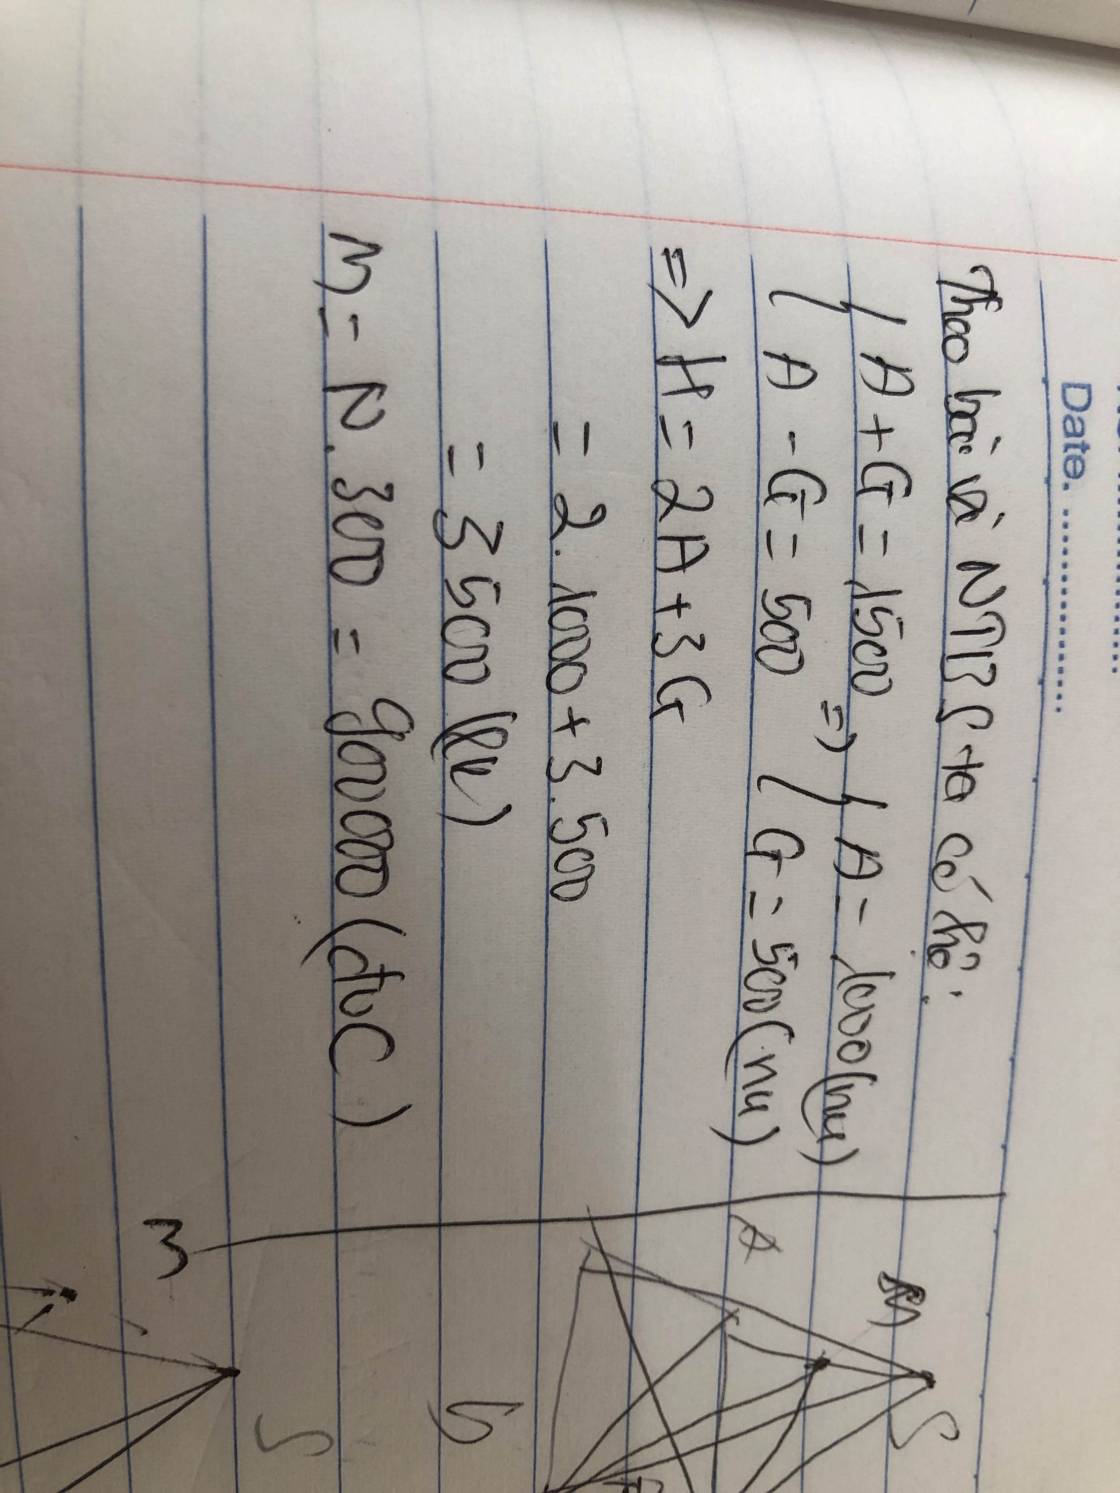 Date.
Theo bài và NTBS ta có hệ:
A + G = 1500 => A = 1000 (nu)
A - G = 500 G = 500 (nu)
=> H = 2A + 3G
= 2.1000 + 3.500
= 3500 (lk)
M = N.300 = 900000 (đvC)
S
M
A
b
S
3